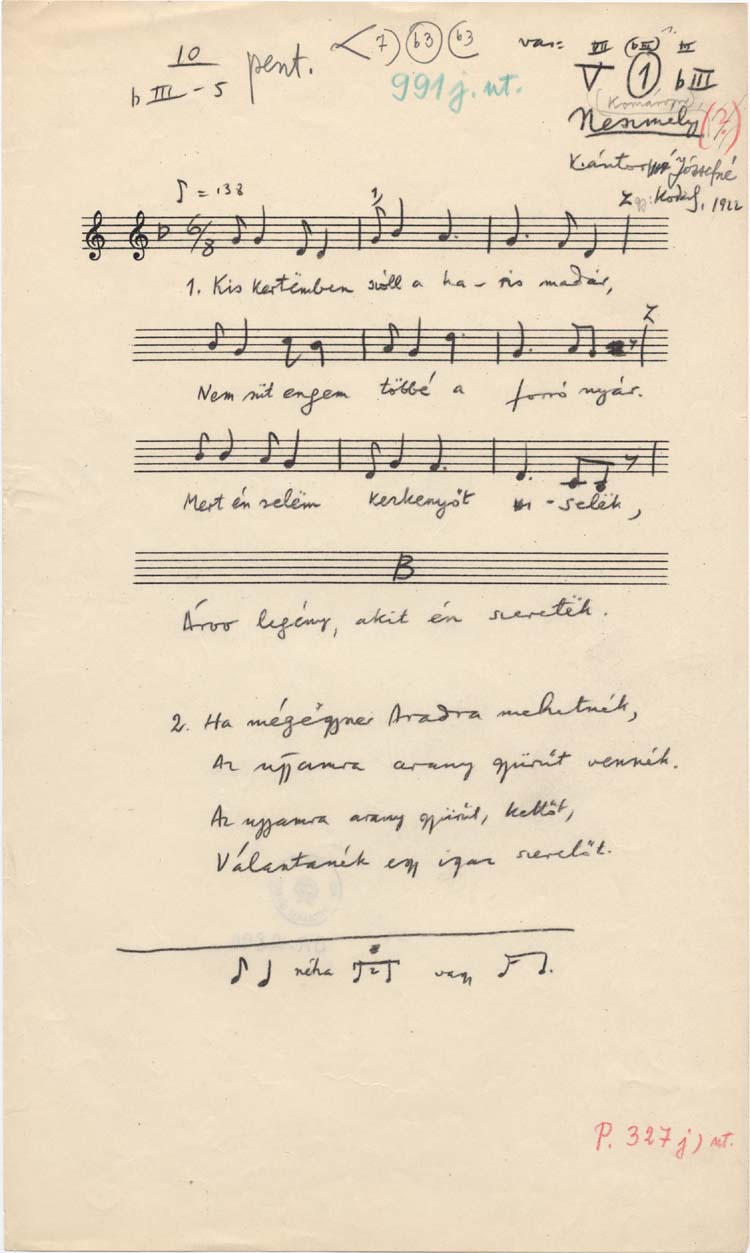 10
b III - 5
pent.
7) b3 (b3
991 j. nt.
var = VII (bIII) IV
V 1 bIII
(Komárom),
Neszmély (?)
Kántor Józsefné
Kodály, 1922
♪ = 138
6/8
1.
1. Kis kertëmben szóll a ha - ris madár,
Z
Nem süt engem többé a forró nyár.
Mert én selëm keszkenyőt vi - selëk,
B
Árva legény, akit én szeretëk.
2. Ha mégëgyszer Aradra mehetnék,
Az ujjamra arany gyürüt vennék.
Az ujjamra arany gyürüt, kettőt,
Válantanék egy igaz szeretőt.
néha 2 vagy
P. 327 j) nt.